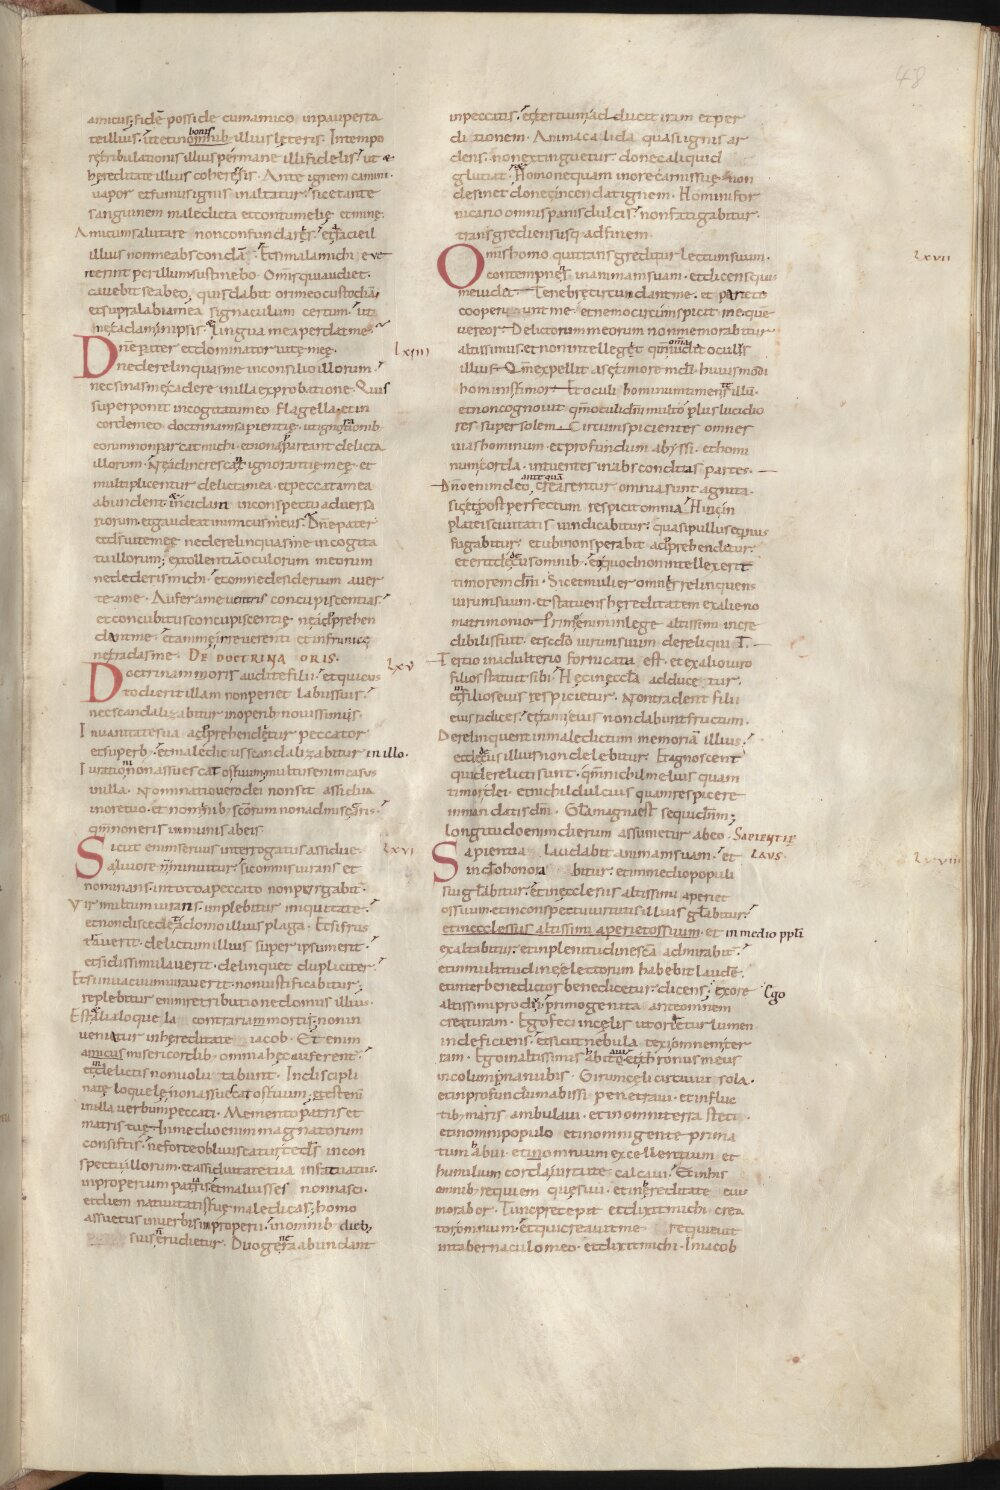 48
amicus; fidē posside cum amico in paupertate
illius. ut et in omnib; bonis illius leteris. In tempore
tribulationis illius permane illi fidelis. ut &
hęreditate illius coheres sis. Ante ignem camini
vapor et fumus ignis inaltatur. sic et ante
sanguinem maledicta et contumelię et minę.
Amicum salutare non confundar. et a facie il
illius non me abscondā. Et si mala michi eve
nerint per illum sustinebo. Omnis qui audiet.
cavebit se ab eo, quis dabit ori meo custodiā.
et supra labia mea signaculum certum. ut
ne cadam in ipsis. & lingua mea perdat me.
Dn̄e pater et dominator vitę meę. lxiiii
ne derelinquas me in consilio illorum.
nec sinas me cadere in illa exprobatione. Quis
superponit in cogitatu meo flagella. et in
corde meo doctrinam sapientię. ut ignorationib;
eorum non parcat michi. et non appareant delicta
illorum. Ne adincrescant ignorantię meę. et
multiplicentur delicta mea. et peccata mea
abundent. & incidam in conspectu adversa
riorum. et gaudeat inimicus meus. Dn̄e pater
et ds̄ vitę meę ne derelinquas me in cogita
tu illorum; extollentiā oculorum meorum
ne dederis michi. et omne desiderium aver
te a me. Aufer a me ventris concupiscentias.
et concubitus concupiscentię ne adprehen
dant me. et animę inreverenti et infrunitę
ne tradas me. DE DOCTRINA ORIS.
Doctrinam oris audite filii. et qui cus lxv
todierit illam non periet labiis suis.
nec scandalizabitur in operib; novissimis.
In vanitate sua adprehendetur peccator
et superb; et maledicus scandalizabitur in illo.
Iurationi non assuescat os tuum; multi enim casus
in illa. Nominatio vero dei non sit assidua
in ore tuo. et nominib; scōrum non admiscearis.
qm̄ non eris immunis ab eis.
Sicut enim servus interrogatus assidue. lxvi
a livore non minuitur. sic omnis iurans et
nominans. in toto a peccato non purgabit.
Vir multum iurans. implebitur iniquitate.
et non discedet a domo illius plaga. Et si frus
traverit. delictum illius super ipsum erit.
et si dissimulaverit. delinquet dupliciter.
Et si in vacuum iuraverit. non iustificabitur;
replebitur enim retributione domus illius.
Est et alia loquela contraria morti; non in
veniatur in hereditate iacob. Et enim
a misericordib; omnia hęc auferent.
et in delictis non volutabunt. Indiscipli
natę loquelę non assuescat os tuum. est enim
in illa verbum peccati. Memento patris et
matris tuę. In medio enim magnatorum
consistis. ne forte obliviscatur te ds̄ in con
spectu illorum. et assiduitate tua infatuatus.
inproperium patiaris. et maluisses non nasci.
et diem nativitatis tuę maledicas; homo
assuetus in verbis inproperii. in omnib; dieb;
suis non erudietur. Duo genera abundant
in peccatis. et tertium adducit iram et per
ditionem. Anima calida quasi ignis ar
dens. non extinguetur. donec aliquid
glutiat. & homo nequam in ore carnis suę. non
desinet donec incendat ignem. Homini for
nicario omnis panis dulcis. non fatigabitur.
transgrediens usq; ad finem
Omis homo qui transgreditur lectum suum. lxvii
contempnens in animam suam. et dicens quis
me videt. Tenebrę circumdant me. et parietes
cooperiunt me. et nemo circumspicit me. quē
vereor. Delictorum meorum non memorabitur
altissimus. et non intelleget qm̄ omnia videt oculus
illius. Qm̄ expellit a se timorem di. huiusmodi
hominis timor. Et oculi hominum timentes illū.
et non cognovit qm̄ oculi dn̄i multo plus lucidio
res super solem. Circumspicientes omnes
vias hominum. et profundum abyssi. et homi
num corda. intuentes in absconditas partes.
Dn̄o enim deo ante quā crearentur omnia sunt agnita.
sic et post perfectum respicit omnia. Hic in
plateis civitatis vindicabitur. quasi pullus equinus
fugabitur. et ubi non sperabit adprehendetur.
et erit dedecus omnib; eo quod non intellexerit
timorem dn̄i. Sic et mulier omnis relinquens
virum suum. et statuens hereditatem ex alieno
matrimonio. Primo enim in lege altissimi incre
dibilis fuit. et scdo virum suum dereliquit.
Tertio in adulterio fornicata est. et ex alio viro
filios statuit sibi. Hęc in ęcclā adducetur.
et in filios eius respicietur. Non tradent filii
eius radices. et rami eius non dabunt fructum.
Derelinquent in maledictum memoriā illius.
et dedecus illius non delebitur. Et agnoscent
qui derelicti sunt. qm̄ nichil melius quam
timor dei. et nichil dulcius quam respicere
in mandatis dn̄i. Gla magna est sequi dn̄m;
longitudo enim dierum assumetur ab eo. SAPIENTIE
LAUS
Sapientia laudabit animam suam. et lxviii
in do honorabitur. et in medio populi
sui glabitur. et in ęcclesiis altissimi aperiet
os suum. et in conspectu virtutis illius glabitur.
et in ecclessiis altissimi aperiet os suum. et in medio ppli
exaltabitur. et in plenitudine scā admirabit.
et in multitudine electorum habebit laudē.
et inter benedictos benedicetur. dicens; Ego ex ore
altissimi prodii. primogenita ante omnem
creaturam. Ego feci in cęlis ut oriretur lumen
indeficiens. et sicut nebula texi omnem ter
ram. Ego in altissimis habitavi. et thronus meus
in columna nubis. Girum cęli circuivi sola.
et in profundum abissi penetravi. et in fluc
tib; maris ambulavi. et in omni terra steti
et in omni populo et in omni gente prima
tum habui. et omnium excellentium et
humilium corda virtute calcavi. Et in his
omnib; requiem quęsivi. et in hereditate
morabor. Tunc precepit et dixit michi crea
tor omnium. et qui creavit me requievit
in tabernaculo meo. et dixit michi. In iacob